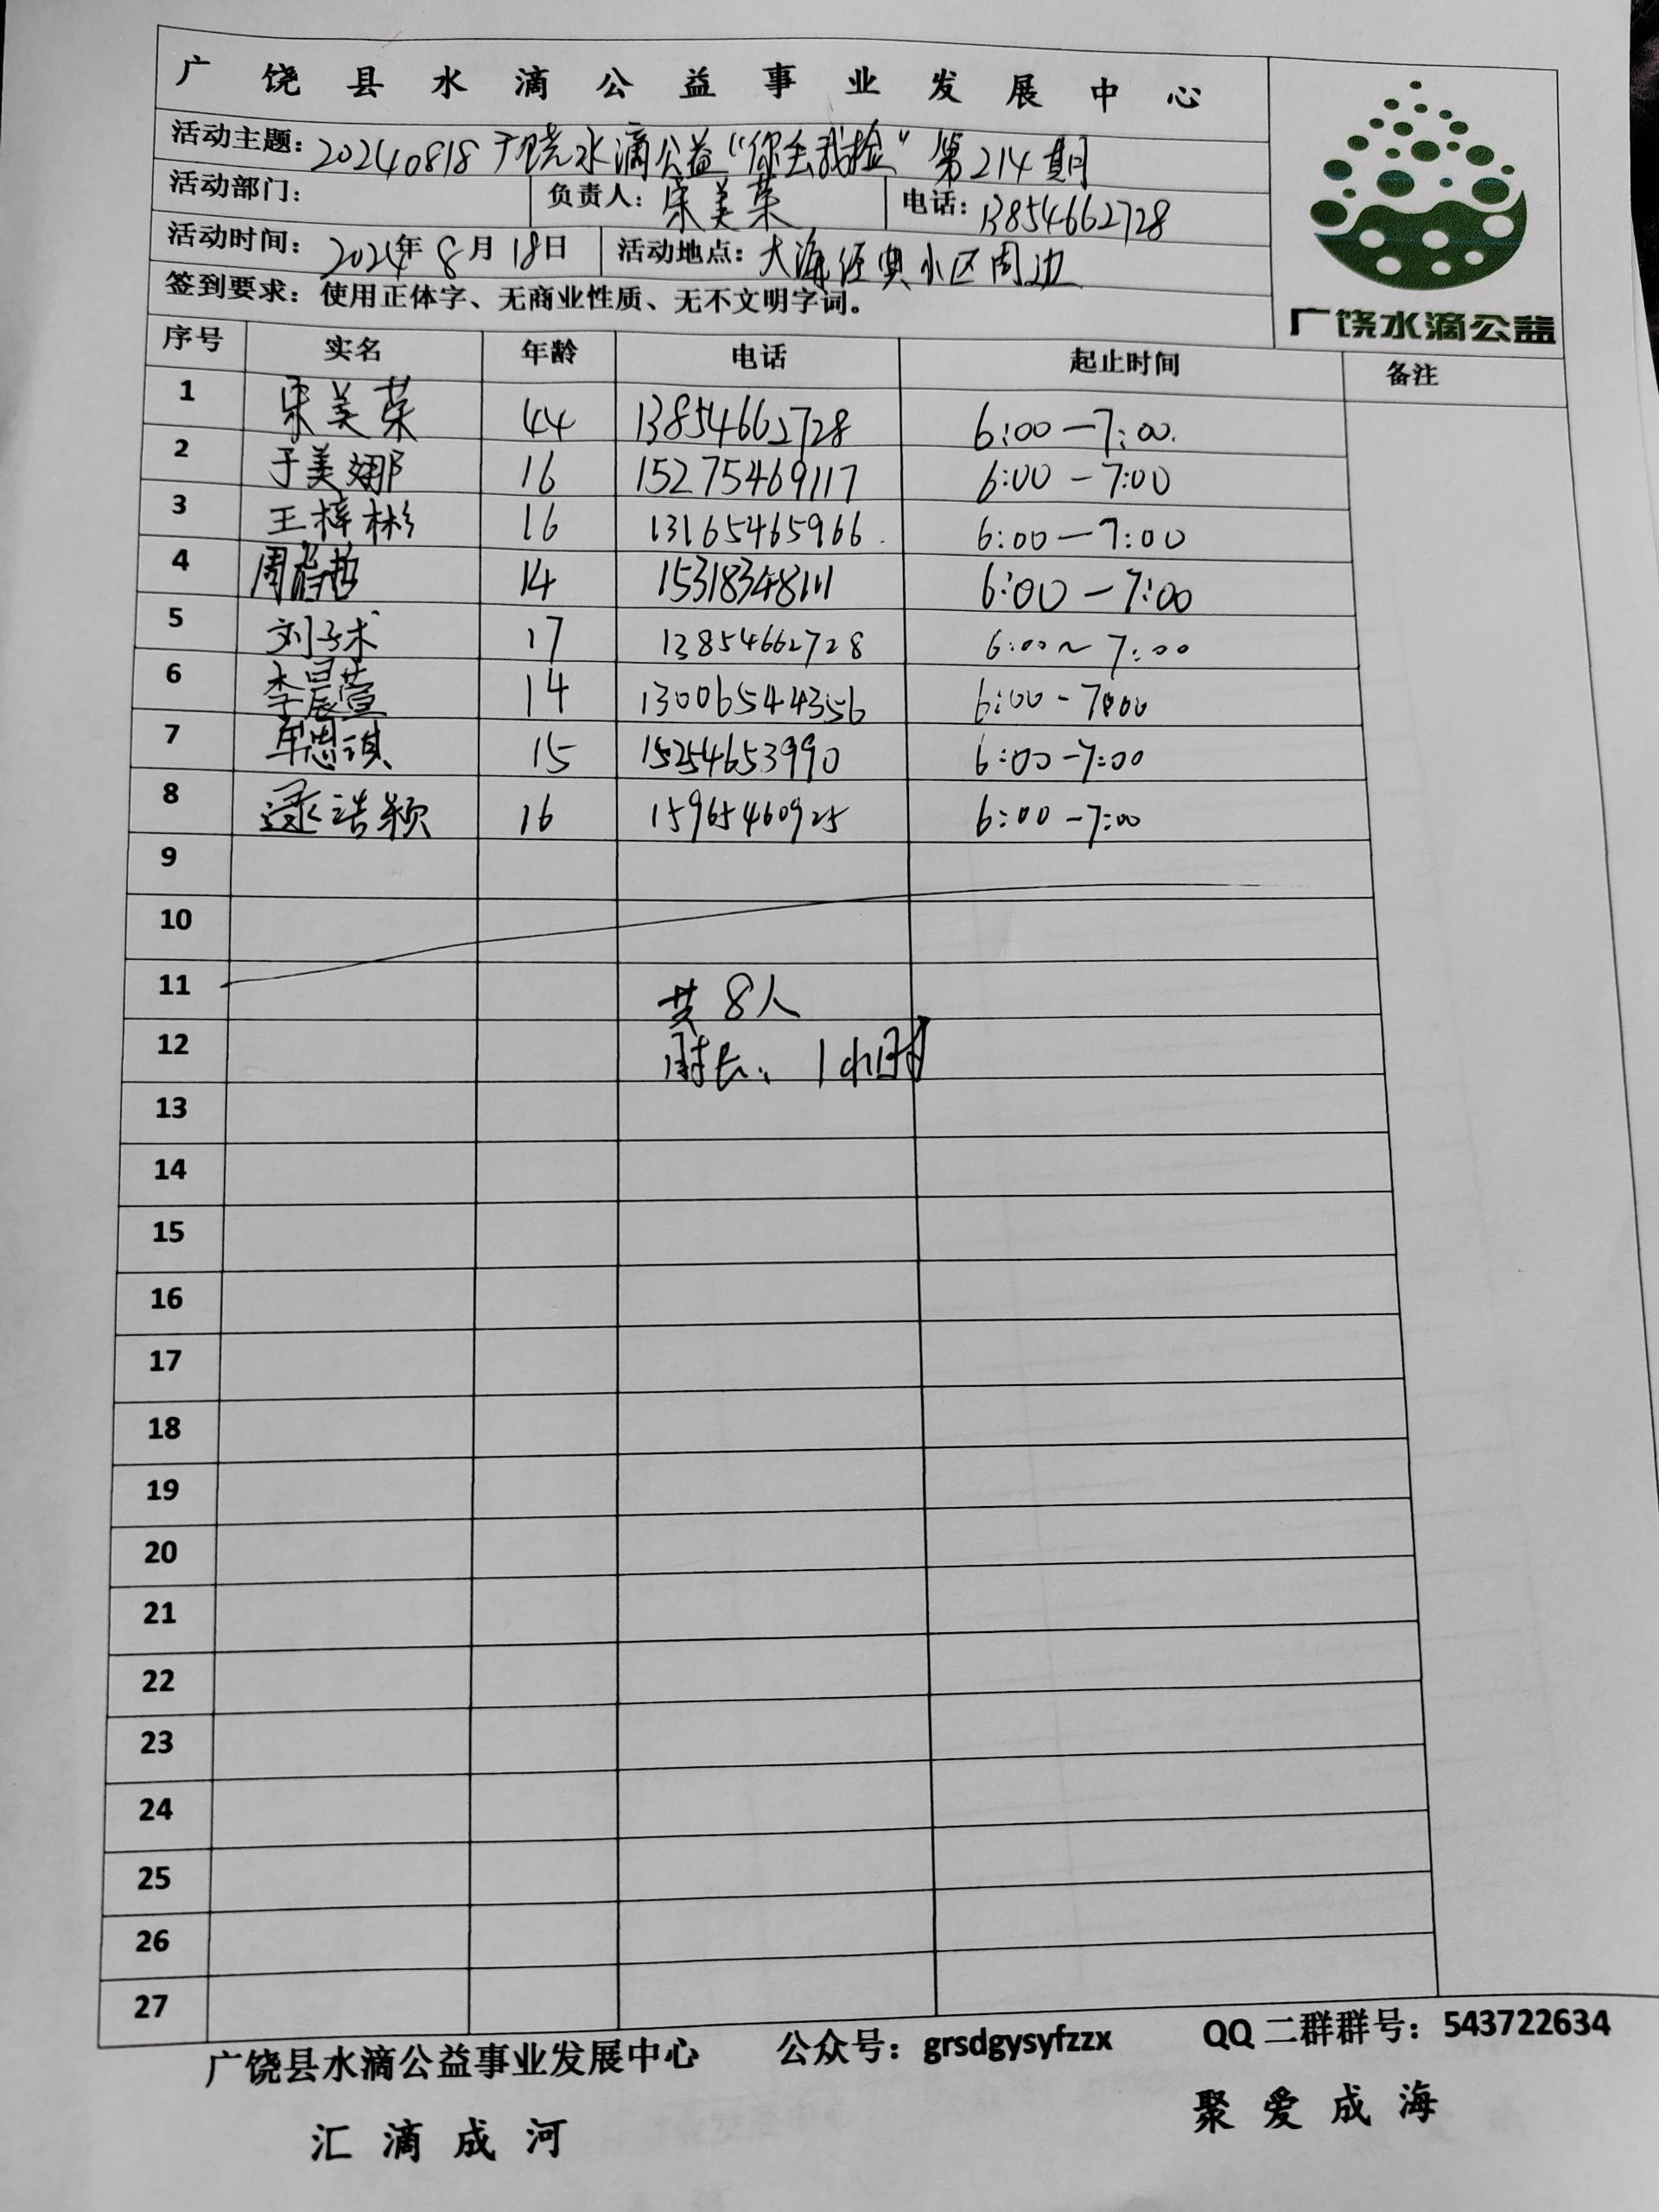 广饶县水滴公益事业发展中心
活动主题：20240818广饶水滴公益“你丢我捡”第214期
活动部门： 负责人：宋美荣 电话：13854662728
活动时间：2024年8月18日 活动地点：大海经典小区周边
签到要求：使用正体字、无商业性质、无不文明字词。
广饶水滴公益
序号 实名 年龄 电话 起止时间 备注
1 宋美荣 44 13854662728 6:00—7:00.
2 于美娜 16 15275469117 6:00—7:00
3 王梓彬 16 13165465966. 6:00—7:00
4 周 14 15318348111 6:00—7:00
5 刘子术 17 13854662728 6:00~7:00
6 李晨萱 14 13006544356 6:00-7:00
7 牟思琪 15 15254653990 6:00-7:00
8 逯浩颖 16 15965460925 6:00-7:00
9
10
11 共8人
12 时长：1小时
13
14
15
16
17
18
19
20
21
22
23
24
25
26
27
广饶县水滴公益事业发展中心 公众号：grsdgysyfzzx QQ二群群号：543722634
汇滴成河 聚爱成海